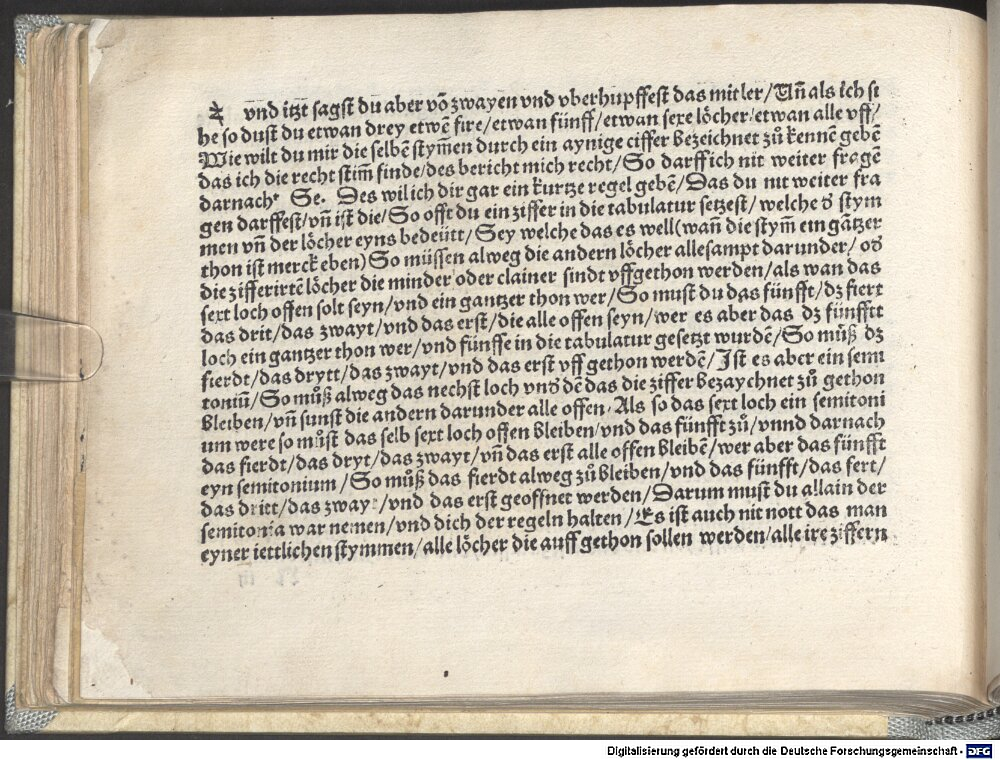 A̅. vnd itzt sagst du aber võ zwayen vnd vberhupffest das mitler/Uñ als ich si
he so dust du etwan drey etwẽ fire/etwan fünff/etwan sexe löcher/etwan alle vff/
Wie wilt du mir die selbẽ stym̃en durch ein aynige ciffer bezeichnet zů kennẽ gebẽ
das ich die recht stim̃ finde/des bericht mich recht/So darff ich nit weiter fragẽ
darnach. Se. Des wil ich dir gar ein kurtze regel gebẽ/Das du nit weiter fra
gen darffest/vñ ist die/So offt du ein ziffer in die tabulatur setzest/welche d̕ stym
men vñ der löcher eyns bedeütt/Sey welche das es well(wañ die stym̃ ein gãtzer
thon ist merck eben)So müssen alweg die andern löcher allesampt darunder/od̕
die zifferirtẽ löcher die minder oder clainer sindt vffgethon werden/als wan das
sext loch offen solt seyn/vnd ein gantzer thon wer/So must du das fünfft/dz fiert
das drit/das zwayt/vnd das erst/die alle offen seyn/wer es aber das dz fünfftt
loch ein gantzer thon wer/vnd fünffe in die tabulatur gesetzt wurdẽ/So můß dz
fierdt/das drytt/das zwayt/vnd das erst vff gethon werdẽ/Ist es aber ein semi
toniũ/So můß alweg das nechst loch vnd̕ dẽ das die ziffer bezaychnet zů gethon
bleiben/vñ sunst die andern darunder alle offen. Als so das sext loch ein semitoni
um were so můst das selb sext loch offen bleiben/vnd das fünfft zů/vnnd darnach
das fierdt/das dryt/das zwayt/vñ das erst alle offen bleibẽ/wer aber das fünfft
eyn semitonium/So můß das fierdt alweg zů bleiben/vnd das fünfft/das fert/
das dritt/das zwayt/vnd das erst geoffnet werden/Darum must du allain der
semitonia war nemen/vnd dich der regeln halten/Es ist auch nit nott das man
eyner iettlichen stymmen/alle löcher die auff gethon sollen werden/alle ire ziffern
Digitalisierung gefördert durch die Deutsche Forschungsgemeinschaft - DFG